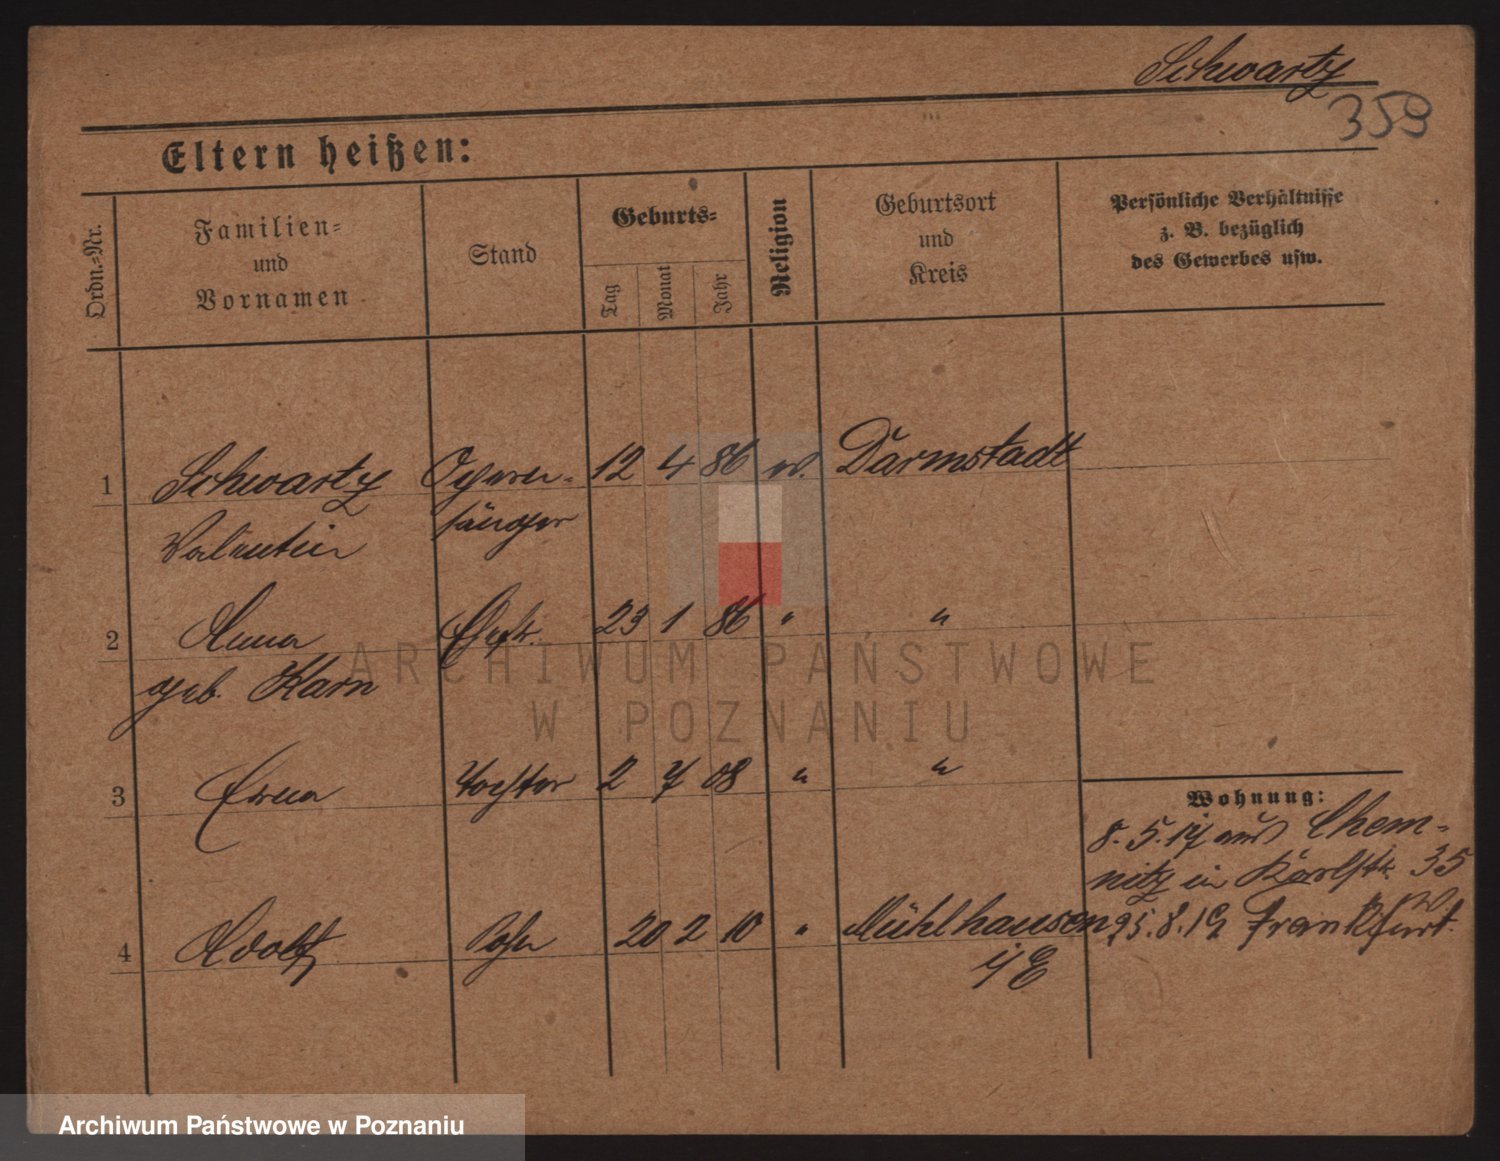 Schwartz
359
Eltern heißen:
Ordn.=Nr.
Familien=
und
Vornamen
Stand
Geburts=
Tag
Monat
Jahr
Religion
Geburtsort
und
Kreis
Persönliche Verhältnisse
z. B. bezüglich
des Gewerbes usw.
1 Schwartz Opern= 12 4 86 Darmstadt
Valentin sänger
2 Anna Ehefr. 23 1 86 " "
geb. Karn
3 Erna Tochter 2 7 08 " "
Wohnung:
8.5.17 aus Chem=
nitz in Karlstr. 35
4 Adolf Sohn 20 2 10 " Mühlhausen
i/E
25.8.19 Frankfurt
ARCHIWUM PAŃSTWOWE
W POZNANIU
Archiwum Państwowe w Poznaniu